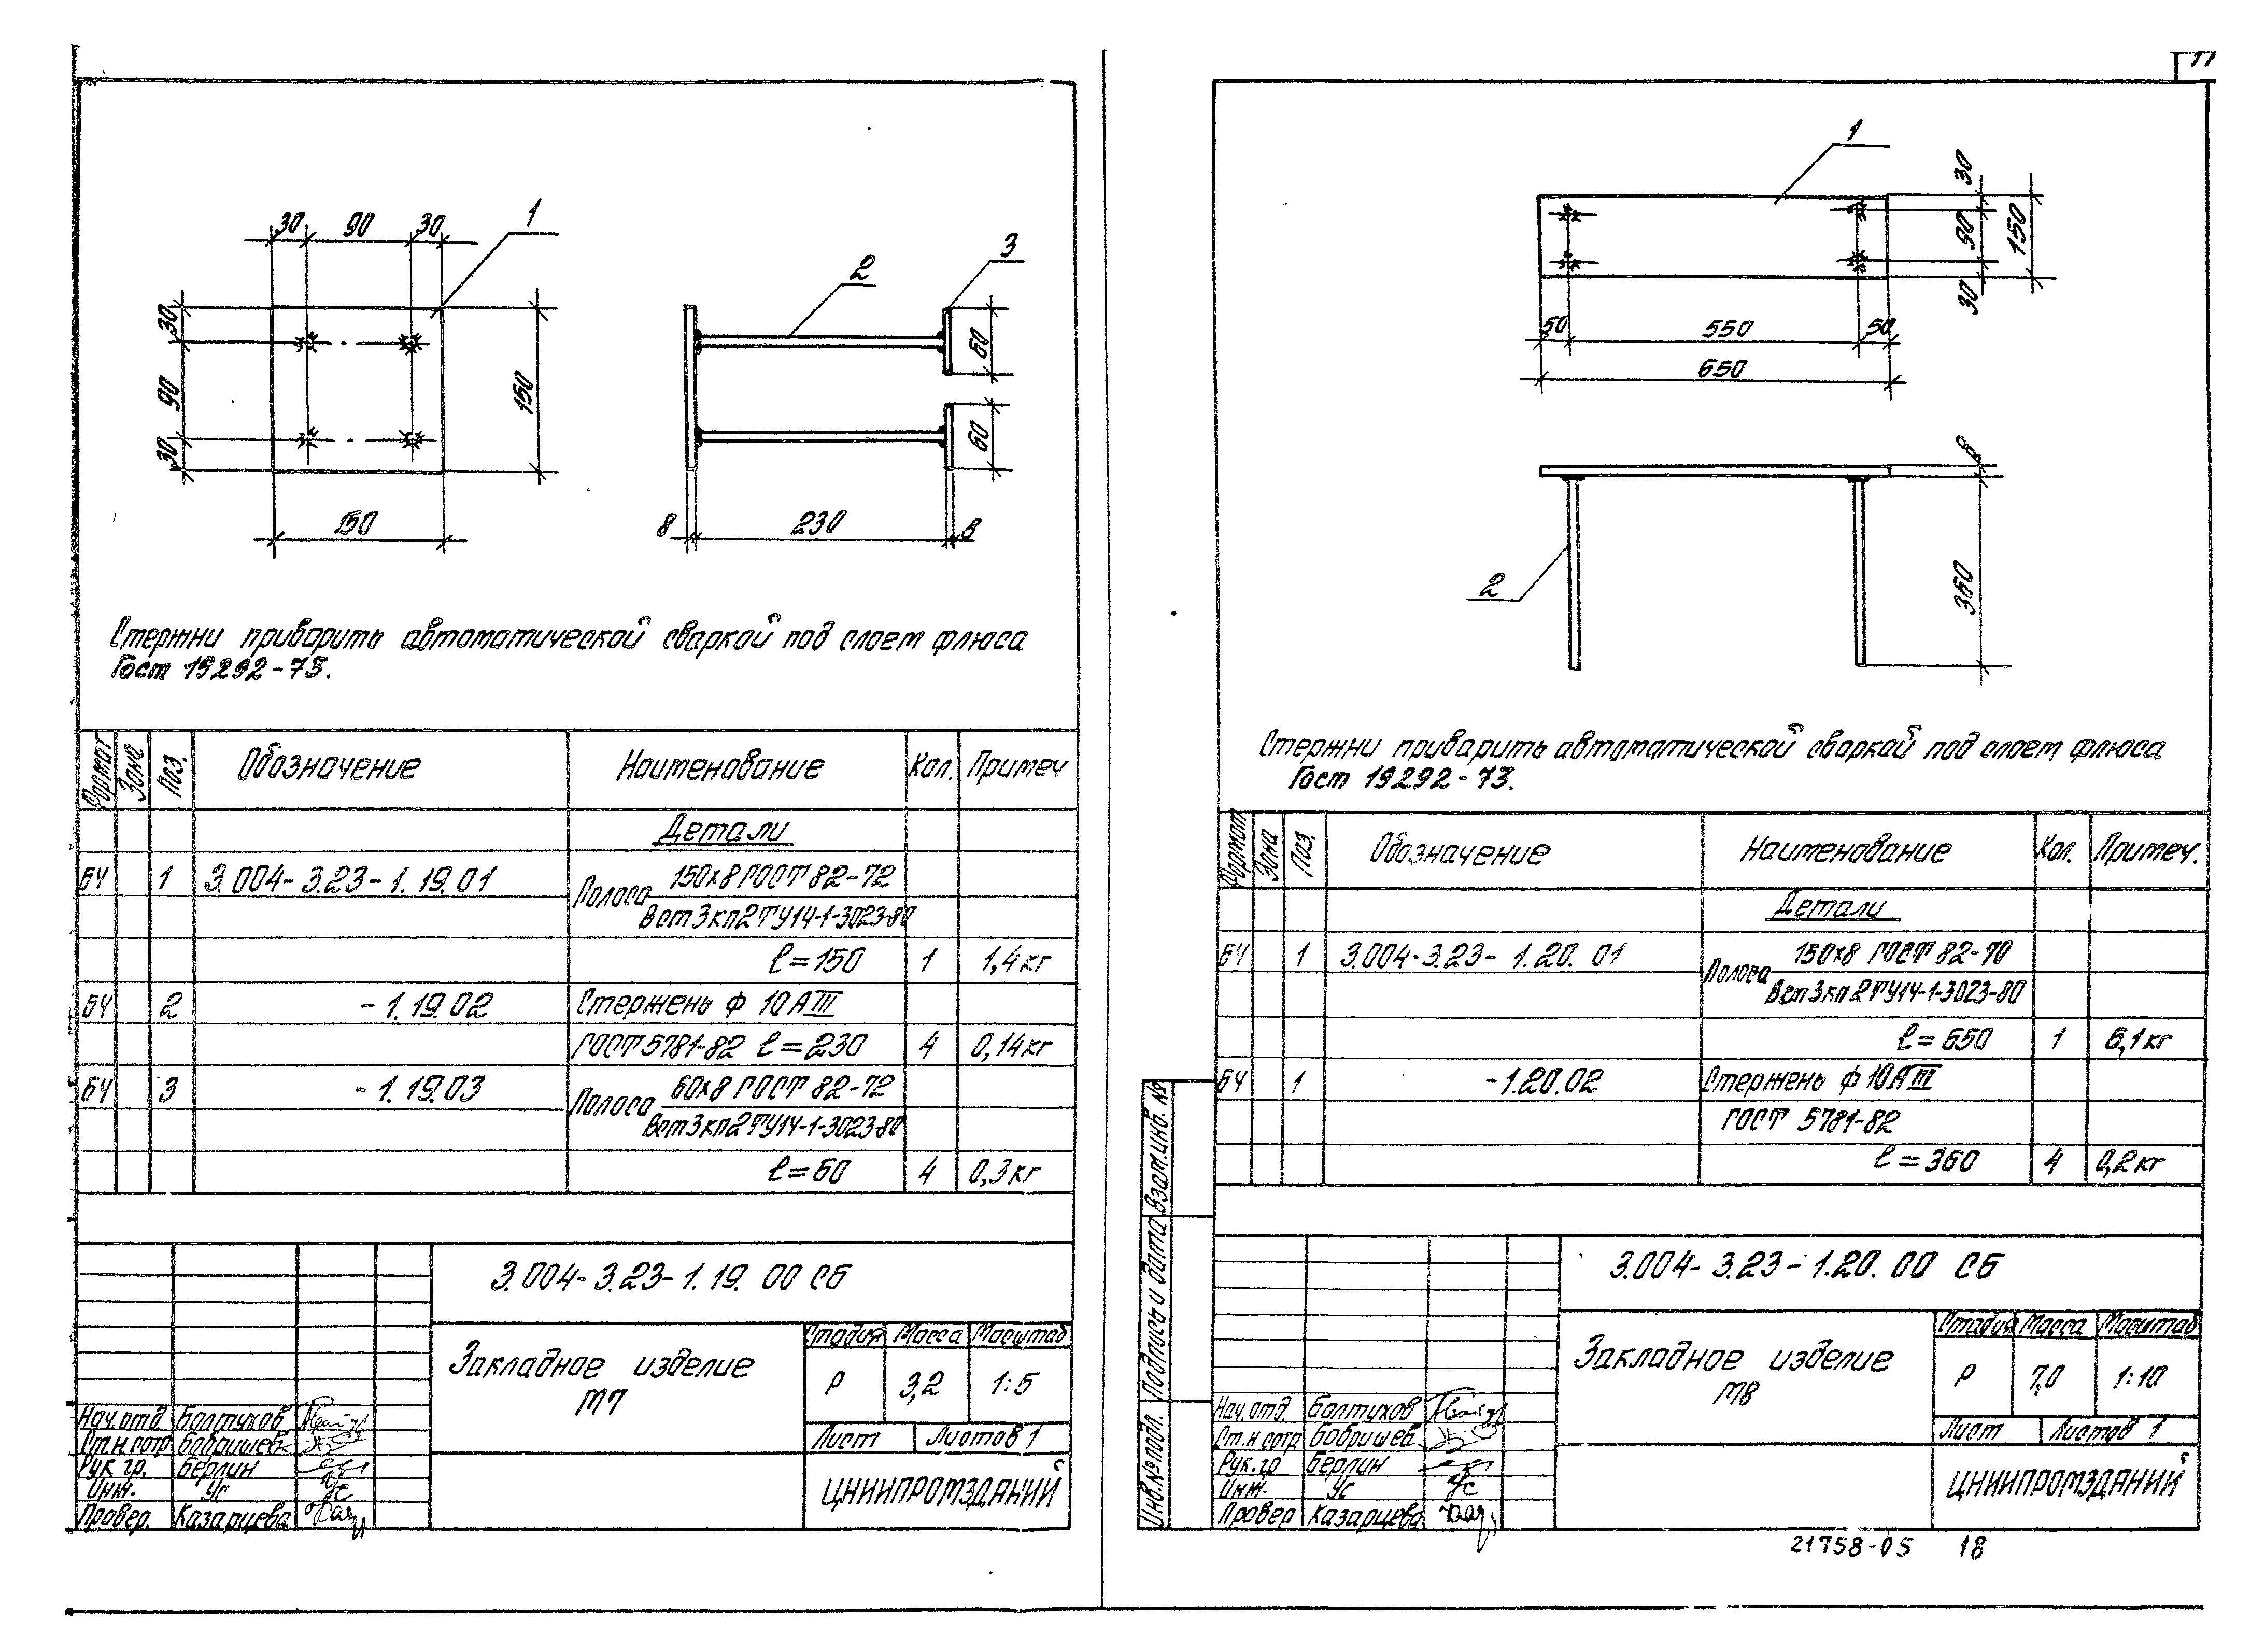 30 90 30 1
30 90 30 150
150
2 3
60
60
8 230 8
Стержни приварить автоматической сваркой под слоем флюса
Гост 19292-73.
Формат Зона Поз. Обозначение Наименование Кол. Примеч
Детали
БЧ 1 3.004-3.23-1.19.01 Полоса 150х8 ГОСТ 82-72
Вст3кп2 ТУ14-1-3023-80
ℓ=150 1 1,4кг
БЧ 2 -1.19.02 Стержень ф 10АIII
ГОСТ 5781-82 ℓ=230 4 0,14кг
БЧ 3 -1.19.03 Полоса 60х8 ГОСТ 82-72
Вст3кп2 ТУ14-1-3023-80
ℓ=60 4 0,3кг
3.004-3.23-1.19.00 СБ
Закладное изделие
М7
Стадия Масса Масштаб
Р 3,2 1:5
Лист Листов 1
ЦНИИПРОМЗДАНИЙ
Нач.отд. Балтухов
Ст.н.сотр Бобришев
Рук гр. Берлин
Инж. Ус
Провер. Казарцева
1
30 90 30 150
50 550 50
650
8
360
2
Стержни приварить автоматической сваркой под слоем флюса
Гост 19292-73.
Формат Зона Поз. Обозначение Наименование Кол. Примеч.
Детали
БЧ 1 3.004-3.23-1.20.01 Полоса 150х8 ГОСТ 82-70
Вст3кп2 ТУ14-1-3023-80
ℓ=650 1 6,1кг
БЧ 1 -1.20.02 Стержень ф 10АIII
ГОСТ 5781-82
ℓ=360 4 0,2кг
3.004-3.23-1.20.00 СБ
Закладное изделие
М8
Стадия Масса Масштаб
Р 7,0 1:10
Лист Листов 1
ЦНИИПРОМЗДАНИЙ
Нач.отд. Балтухов
Ст.н сотр Бобришев
Рук.гр Берлин
Инж. Ус
Провер Казарцева
Инв.№подл. Подпись и дата Взам.инв.№
21758-05 18